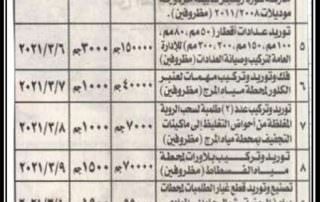 موديلات ٢٠١١/٢٠٠٨ (مظروفين).
٥
توريد عدادات أقطار (٥٠مم، ٨٠مم،
١٠٠مم، ١٥٠مم، ٢٠٠مم، ٣٠٠مم) للإدارة
العامة لتركيب وصيانة العدادات (مظروفين)
١٥٠٠٠٠جم
٣٠٠٠جم
٢٠٢١/٣/٦
٦
فك وتوريد وتركيب مهمات لعنبر
الكلور بمحطة مياه المرج (مظروفين)
٤٠٠٠٠جم
١٠٠٠جم
٢٠٢١/٣/٧
٧
توريد وتركيب عدد (٢) طلمبة لسحب الروبة
المغلظة من أحواض التغليظ إلى ماكينات
التجفيف بمحطة مياه المرج (مظروفين)
٧٠٠٠جم
١٠٠٠جم
٢٠٢١/٣/٨
٨
توريد وتركيب بلاورات لمحطة
مياه الفسطاط (مظروفين)
٧٠٠٠٠جم
١٥٠٠جم
٢٠٢١/٣/٩
تصنيع وتوريد قطع غيار الطلمبات لمحطات